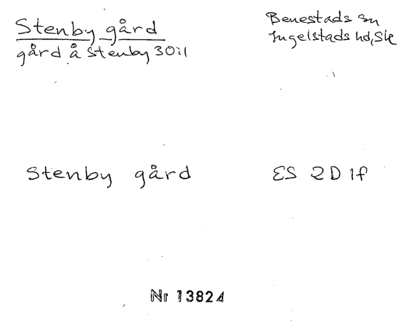 Stenby gård
gård å Stenby 30:1
Benestads sn
Ingelstads hd, Sk
Stenby gård
ES 2D 1f
Nr 13824